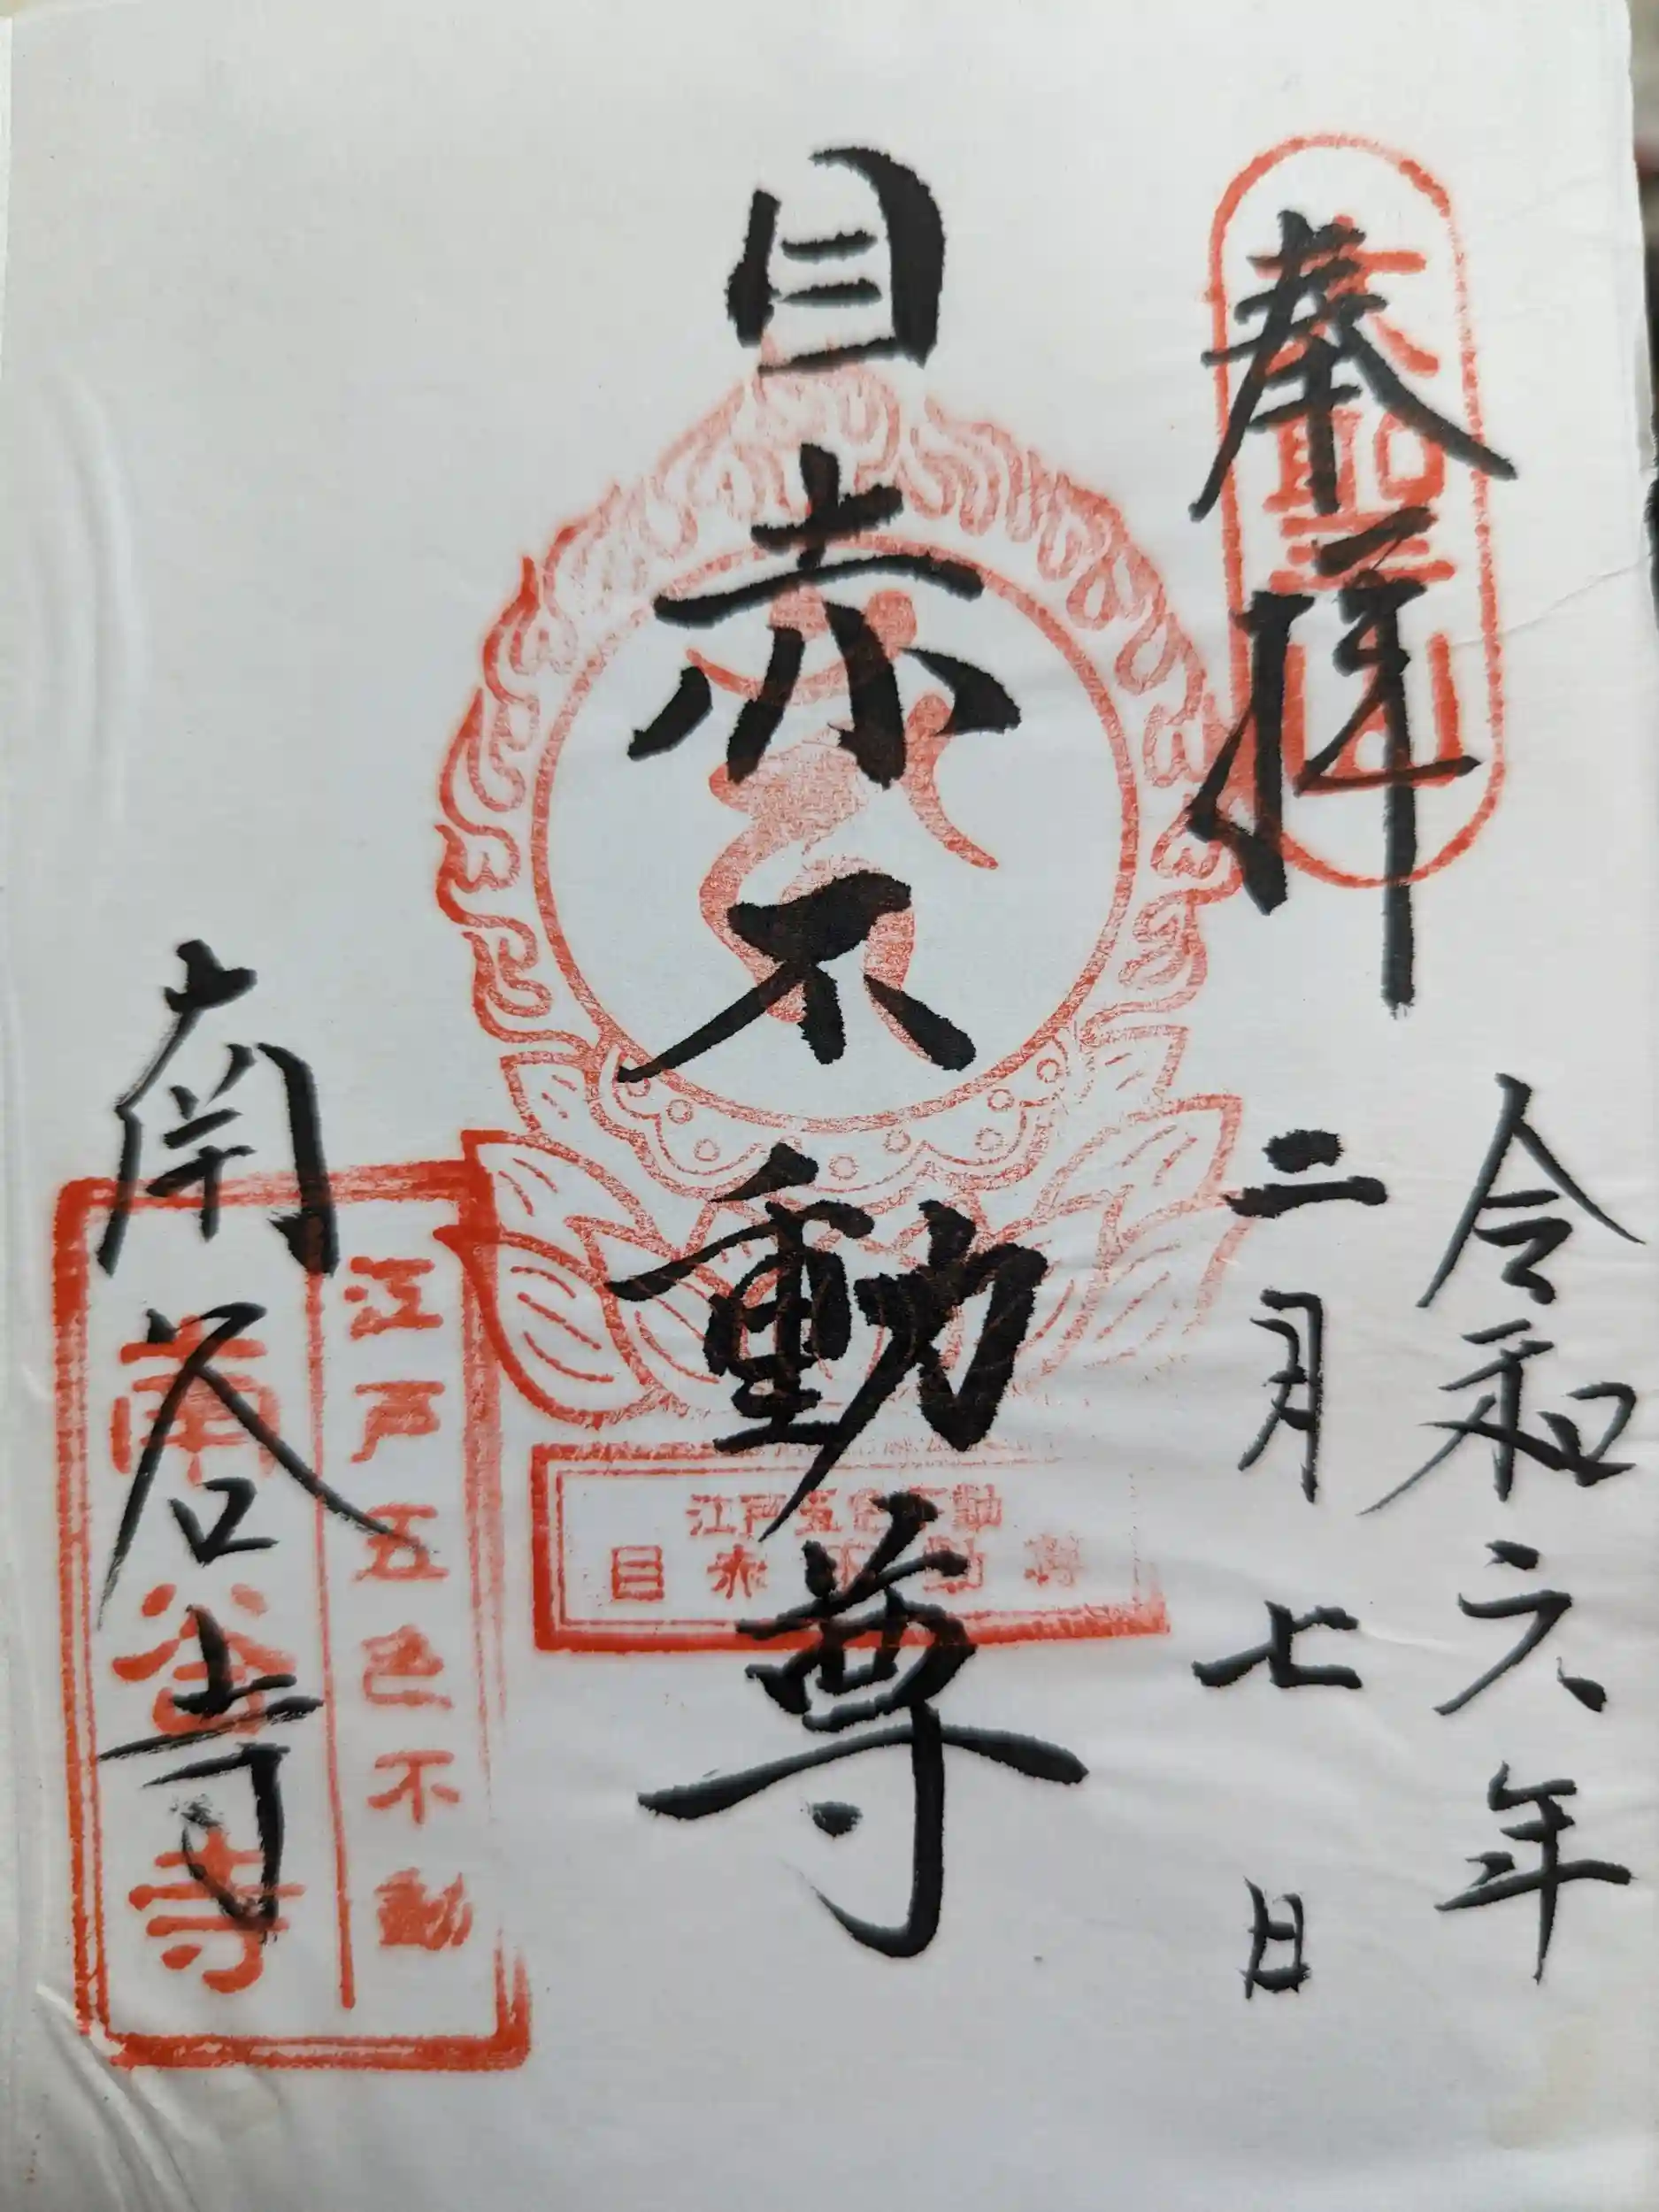 奉拝
大聖山
令和六年
二月七日
目赤不動尊
江戸五色不動
目赤不動尊
南谷寺
江戸五色不動
南谷寺